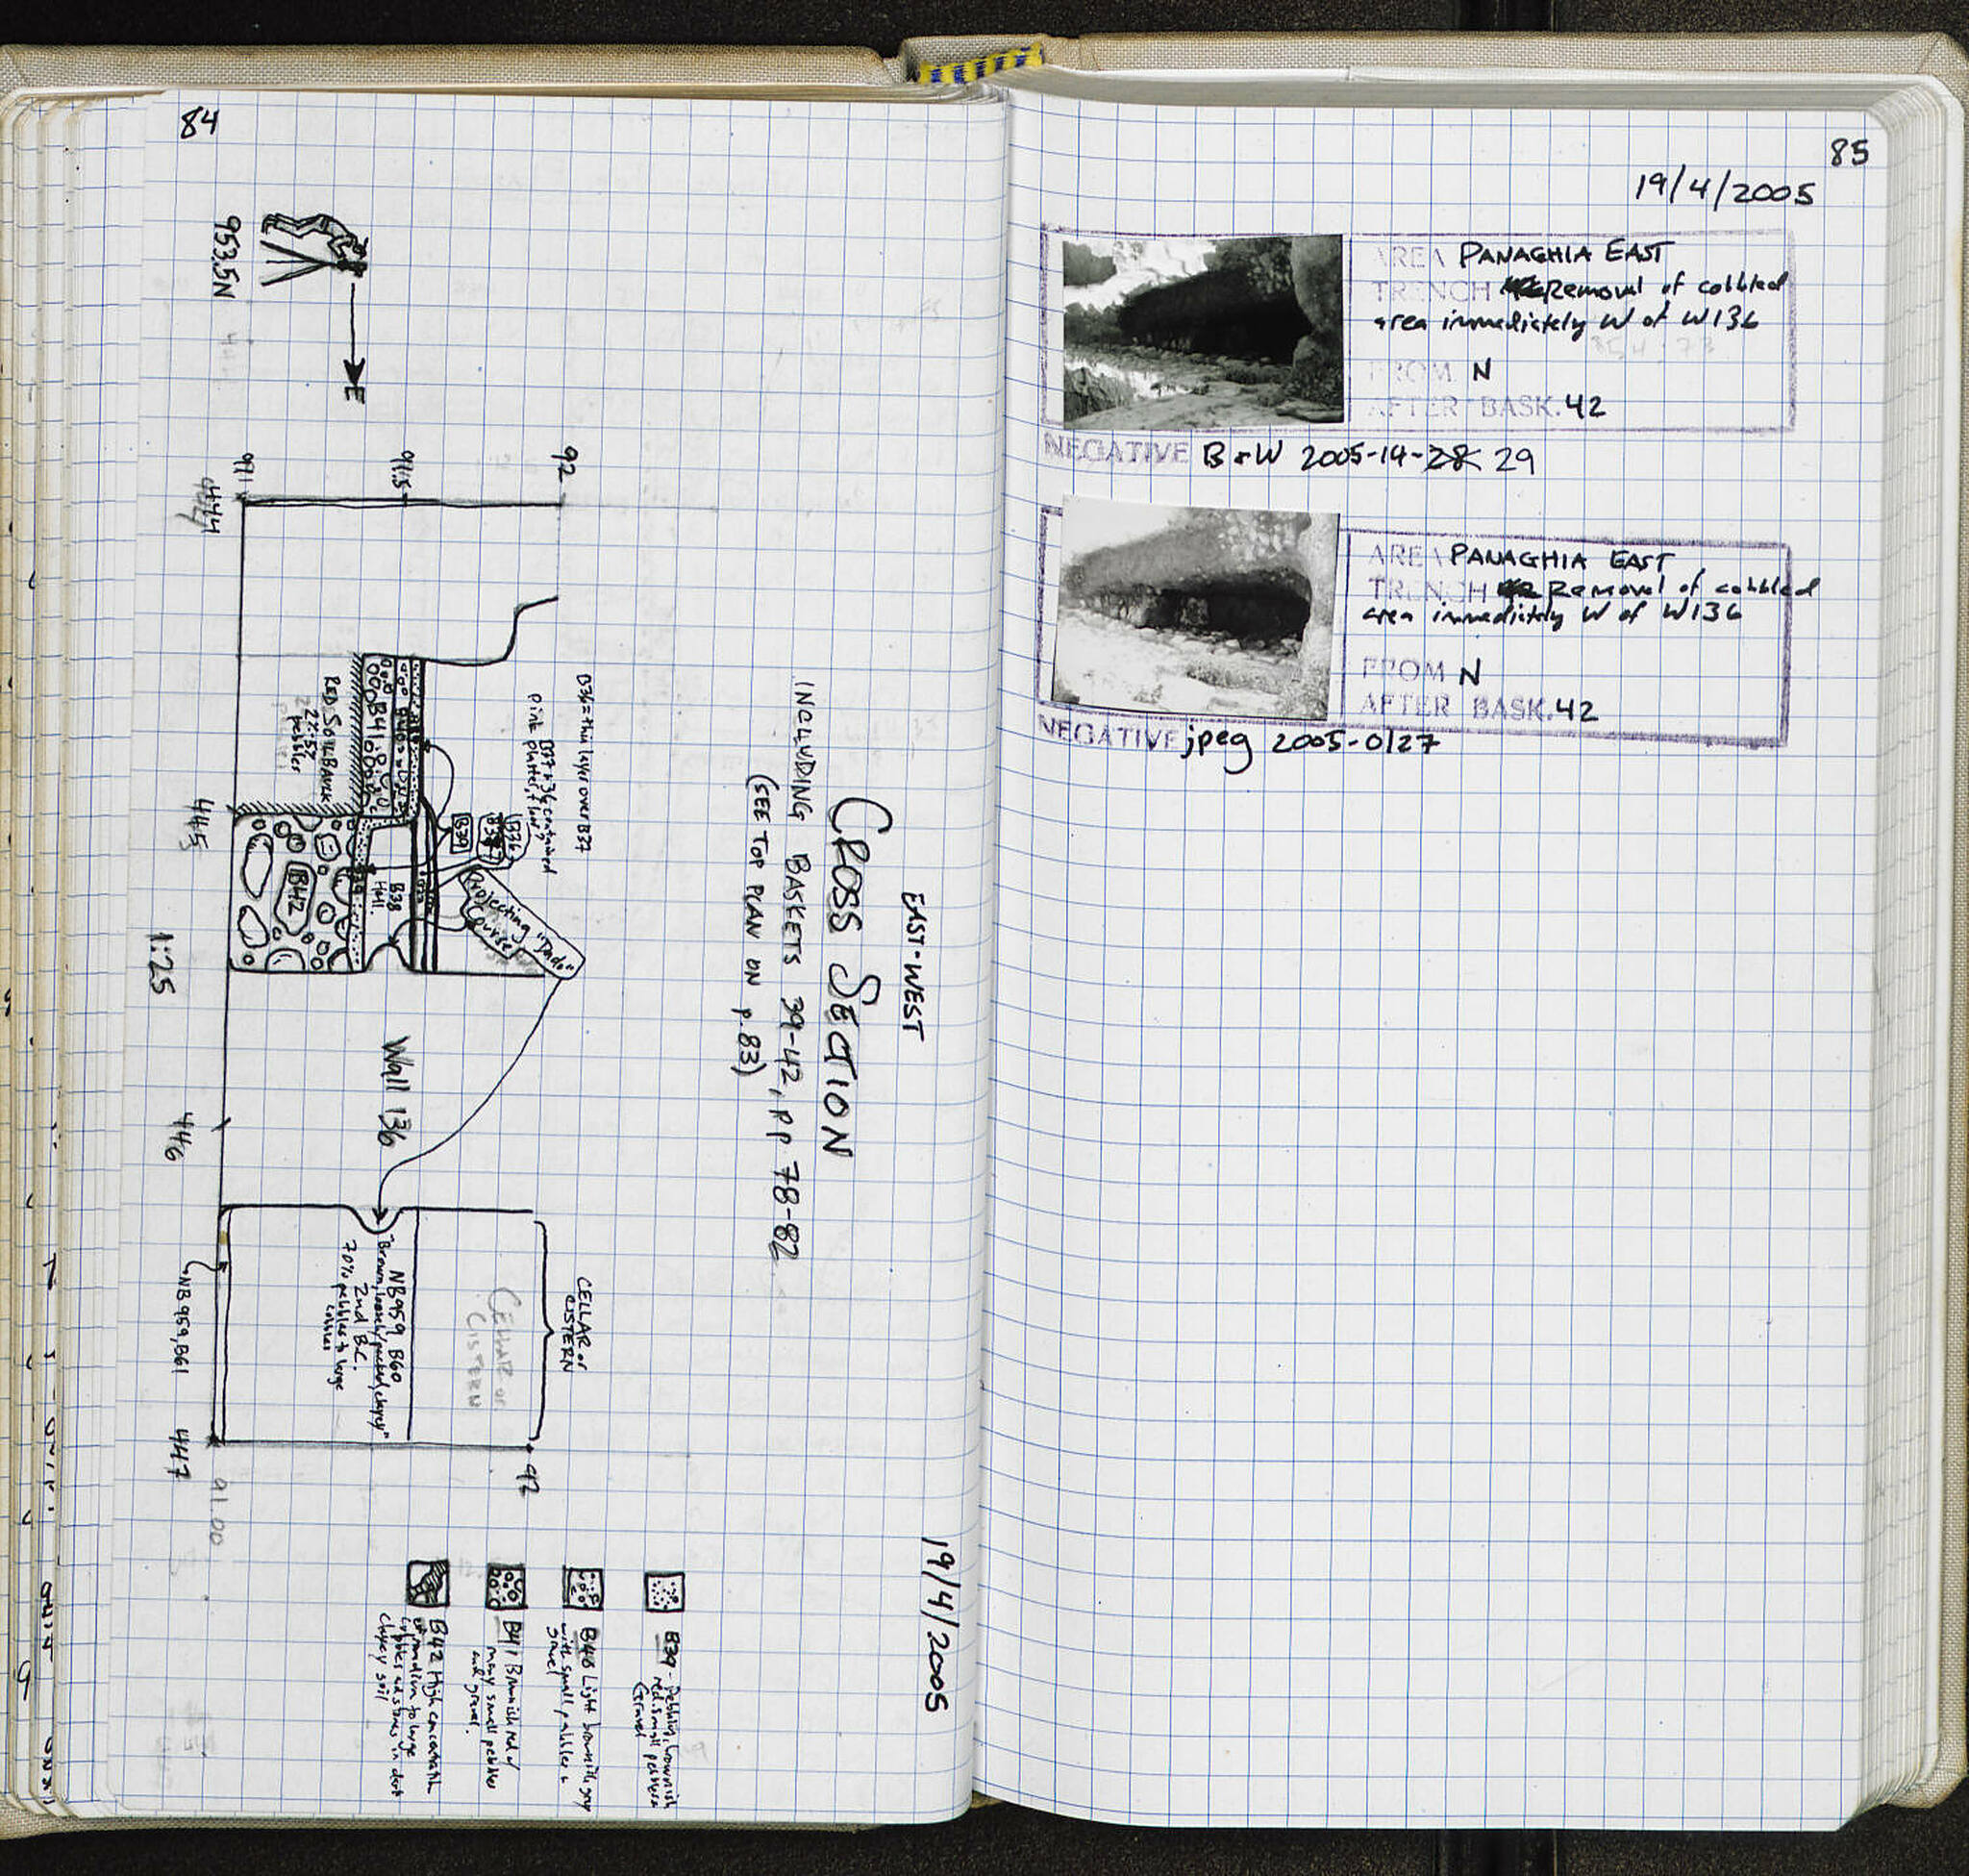 84
19/4/2005
EAST-WEST
CROSS SECTION
INCLUDING BASKETS 39-42, PP 78-82
(SEE TOP PLAN ON P.83)
953.5N
E
92
91.5
91
444
445
446
447
1:25
B36=thin layer over B37
B37 + 36 contained
pink plaster, floor?
B36
B37
B39
Projecting "Dado"
Course
B40
B41
B39
B38
HMl.
B42
RED SOIL BAULK
2%-5%
pebbles
Wall 136
CELLAR or
CISTERN
CELLAR or
CISTERN
NB959 B60
"Brown, loosely packed, clayey"
2nd B.C.
70% pebbles to large
cobbles
NB959, B61
92
91.00
B39 - Pebbly, brownish
red. small pebbles
Gravel
B40 Light brownish gray
with small pebbles +
gravel
B41 Brownish red w/
many small pebbles
and gravel.
B42 High concentration
of medium to large
cobbles and stones in dark
clayey soil
85
19/4/2005
AREA PANAGHIA EAST
TRENCH Removal of cobbled
area immediately W of W136
FROM N
AFTER BASK. 42
NEGATIVE B+W 2005-14-28 29
AREA PANAGHIA EAST
TRENCH Removal of cobbled
area immediately W of W136
FROM N
AFTER BASK. 42
NEGATIVE jpeg 2005-0127